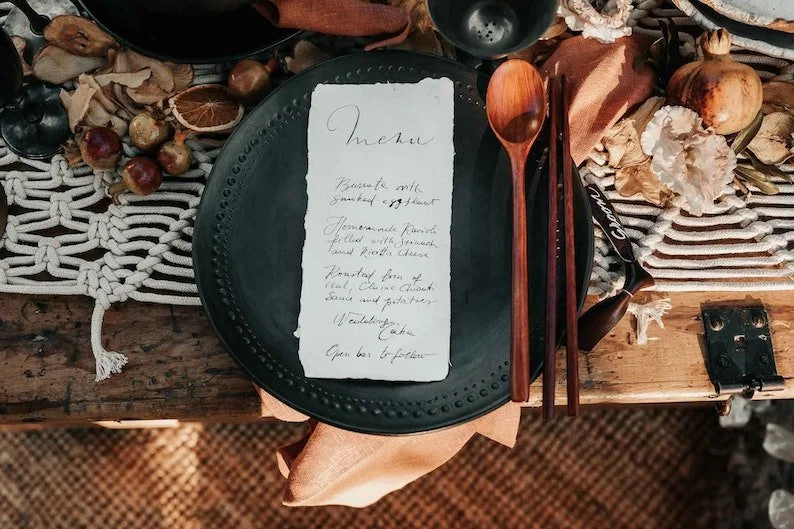 Menu
Burrata with
smoked eggplant
Homemade Ravioli
filled with Spinach
and Ricotta Cheese
Roasted loin of
veal, Classic Chianti
Sauce and potatoes
Wedding
Cake
Open bar to follow